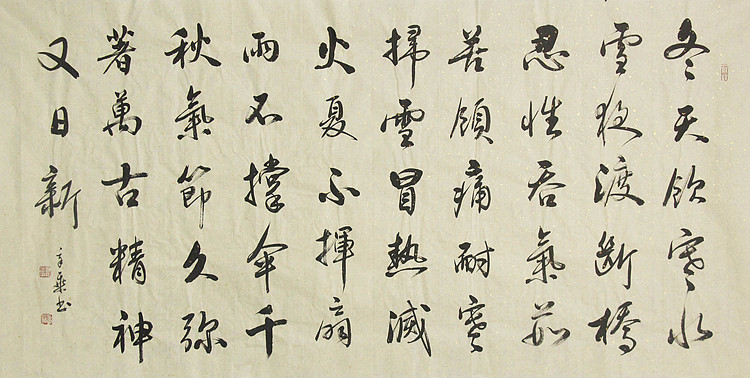 冬天飲寒水
雪夜渡斷橋
忍性吞氣茹
苦領痛耐寒
掃雪冒熱滅
火夏不揮扇
雨不撐傘千
秋氣節久彌
著萬古精神
又日新
书